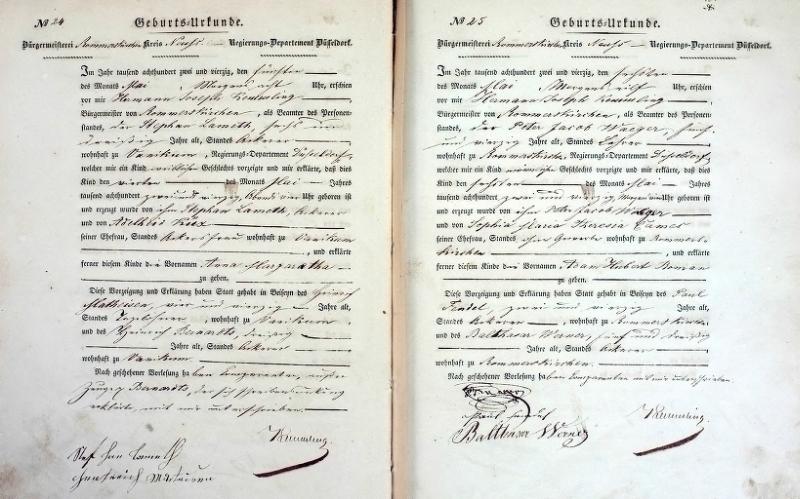 No 24
Geburts-Urkunde.
Bürgermeisterei Rommerskirchen Kreis Neuss Regierungs-Departement Düsseldorf.
Im Jahr tausend achthundert zwei und vierzig, den fünften
des Monats Mai, Morgens acht Uhr, erschien
vor mir Hermann Joseph Kemmerling
Bürgermeister von Rommerskirchen, als Beamter des Personen-
standes, der Stephan Lameth, sechs und
dreißig Jahre alt, Standes Ackerer
wohnhaft zu Vanikum, Regierungs-Departement Düsseldorf,
welcher mir ein Kind weiblichen Geschlechts vorzeigte und mir erklärte, daß dies
Kind den vierten des Monats Mai Jahres
tausend achthundert zwei und vierzig, Abends vier Uhr geboren ist
und erzeugt wurde von ihm Stephan Lameth, Ackerer
und von Adelheid
seiner Ehefrau, Standes Ackersfrau wohnhaft zu Vanikum
, und erklärte
ferner diesem Kinde den Vornamen Anna Margaretha
zu geben.
Diese Vorzeigung und Erklärung haben Statt gehabt in Beiseyn des Heinrich
vier und vierzig Jahre alt,
Standes Tagelöhner, wohnhaft zu Vanikum,
und des Heinrich dreißig
Jahre alt, Standes Ackerer
wohnhaft zu Vanikum.
Nach geschehener Vorlesung haben Comparenten, außer
Zeuge der schreibensunkundig
erklärte, mit mir unterschrieben.
No 25
Geburts-Urkunde.
Bürgermeisterei Rommerskirchen Kreis Neuss Regierungs-Departement Düsseldorf.
Im Jahr tausend achthundert zwei und vierzig, den sechsten
des Monats Mai, Morgens Uhr, erschien
vor mir Hermann Joseph Kemmerling
Bürgermeister von Rommerskirchen, als Beamter des Personen-
standes, der Peter Jacob Waeger, fünf
und vierzig Jahre alt, Standes Lehrer
wohnhaft zu Rommerskirchen, Regierungs-Departement Düsseldorf,
welcher mir ein Kind männlichen Geschlechts vorzeigte und mir erklärte, daß dies
Kind den sechsten des Monats Mai Jahres
tausend achthundert zwei und vierzig, Morgens vier Uhr geboren ist
und erzeugt wurde von ihm Peter Jacob Waeger
und von Sophia Maria Theresia
seiner Ehefrau, Standes ohne Gewerbe wohnhaft zu Rommers-
kirchen, und erklärte
ferner diesem Kinde den Vornamen Adam Hubert
zu geben.
Diese Vorzeigung und Erklärung haben Statt gehabt in Beiseyn des Paul
zwei und vierzig Jahre alt,
Standes Ackerer, wohnhaft zu Rommerskirchen,
und des Balthasar Werner, fünf und dreißig
Jahre alt, Standes Ackerer
wohnhaft zu Rommerskirchen.
Nach geschehener Vorlesung haben Comparenten mit mir unterschrieben.